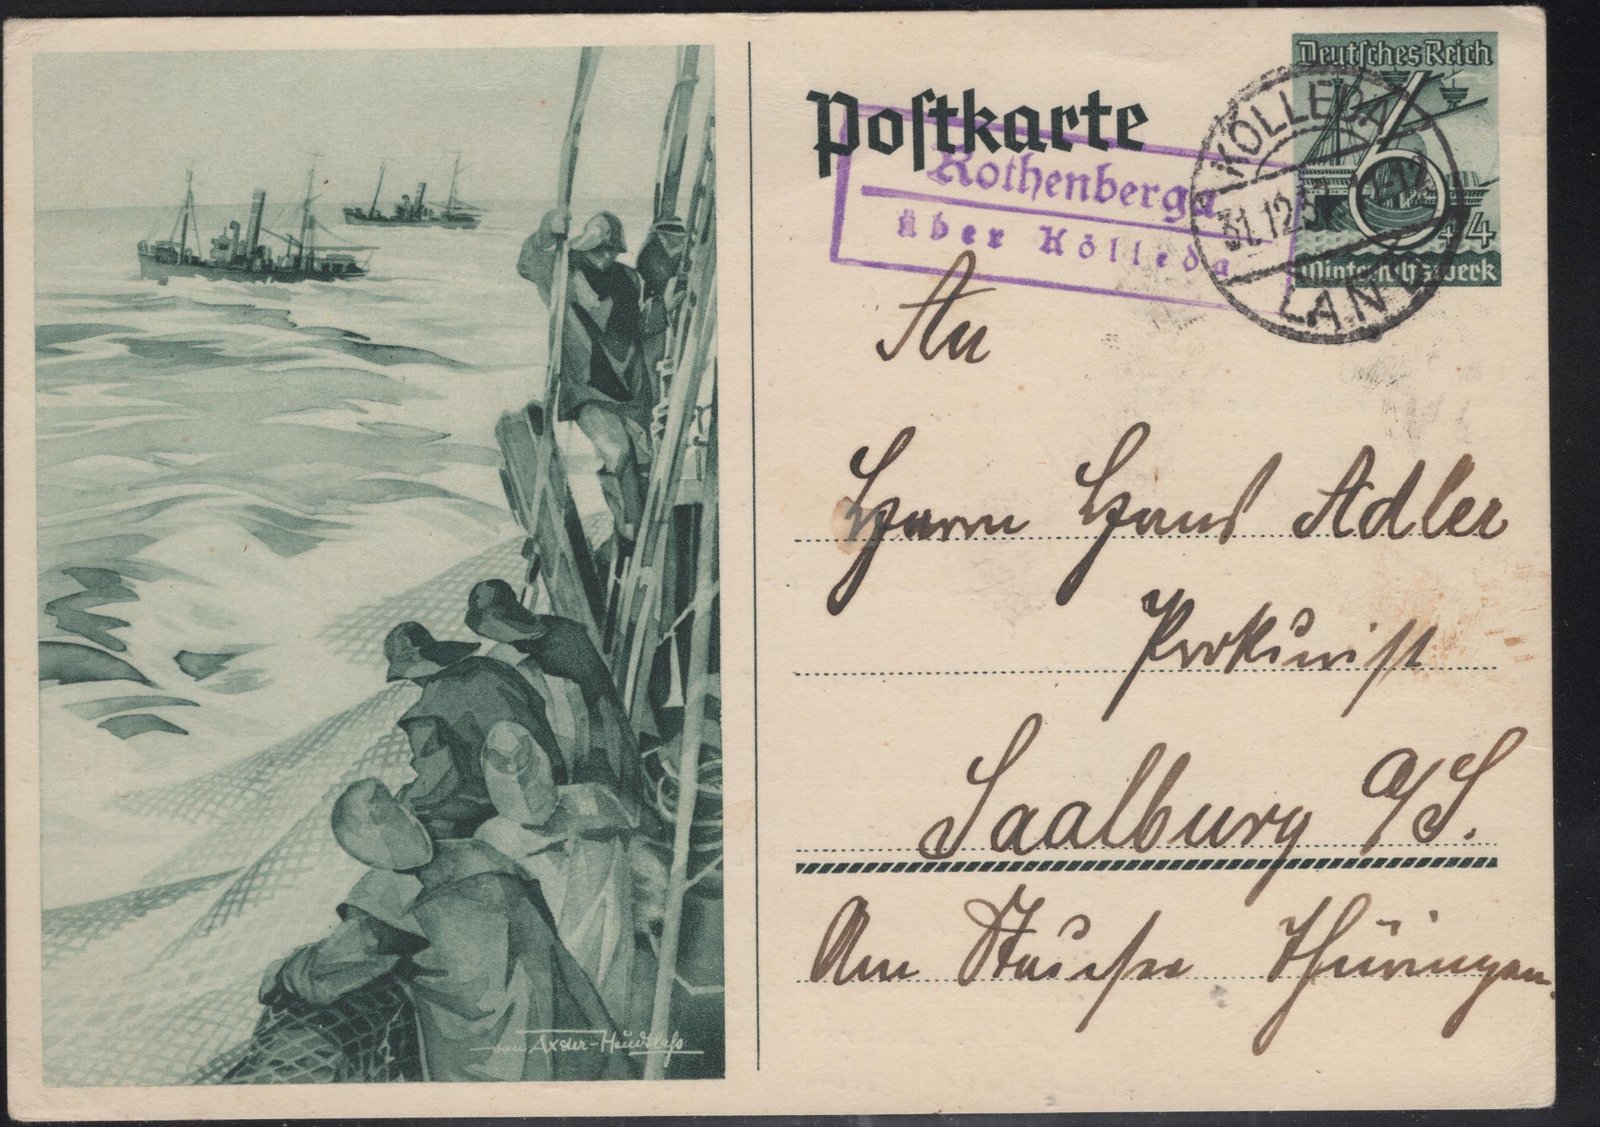 Postkarte
Deutsches Reich
6
+4
Winterhilfswerk
KÖLLEDA
31.12.37
LAND
Rothenberga
über Kölleda
An
Herrn Hans Adler
Prokurist
Saalburg a/S.
Am Thüringen
von Axster-Heudtlaß